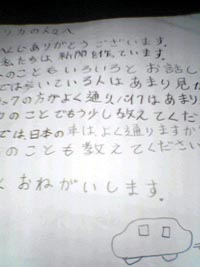 リカの人々へ
へんじありがとうございます。
私たちは新聞を作っています。
のこともいろいろとお話し
では歩いている人はあまり見
クの方がよく通り バイクはあまり
のことでもう少し教えてくだ
では、日本の車はよく通りますか?
のことも教えてください
くおねがいします。